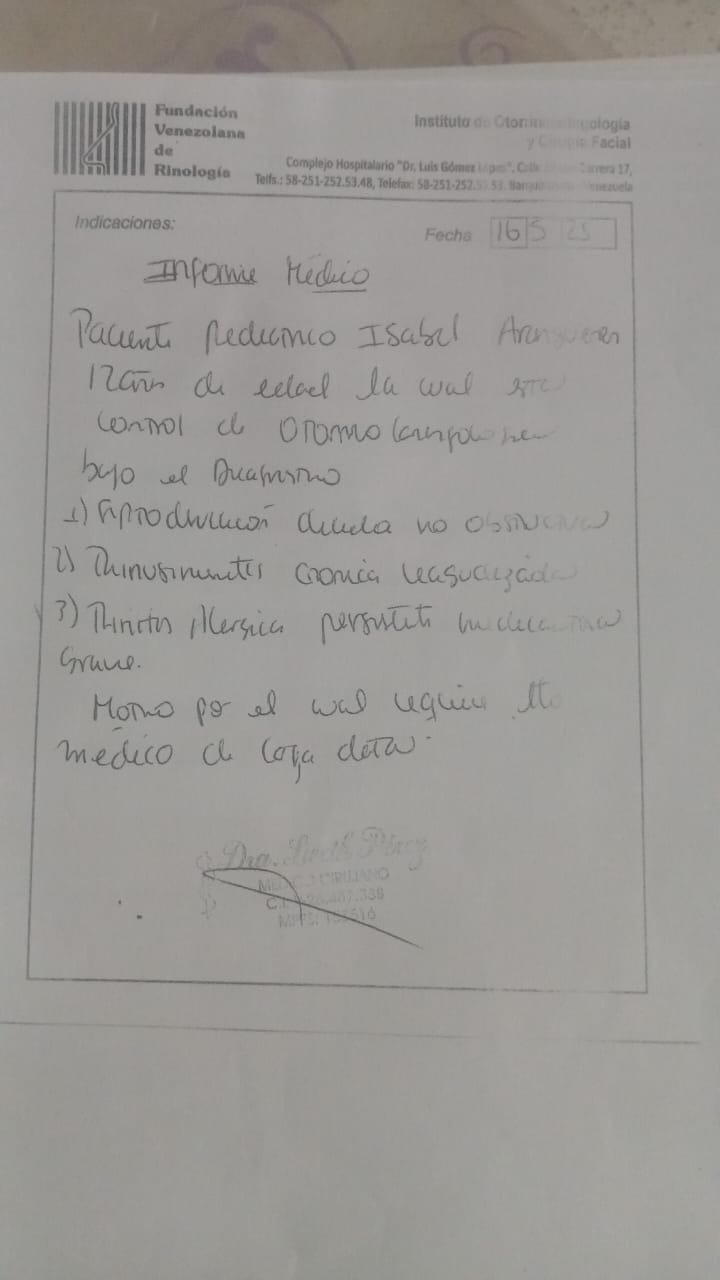 Fundación
Venezolana
de
Rinología
Instituto de Otorrinolaringología
y Cirugía Facial
Complejo Hospitalario "Dr. Luis Gómez López", Calle Carrera 17,
Telfs.: 58-251-252.53.48, Telefax: 58-251-252. 53. Venezuela
Indicaciones:
Fecha 16 5 25
Informe Médico
Paciente Isabel Aranguren
12 años de edad la cual
control de
bajo el Diagnostico
1) no
2) Rinosinusitis cronica reagudizada
3) Rinitis Alergica persistente moderada
Grave.
Motivo por el cual requiere tto
médico de larga data.
Dra. Pérez
MEDICO CIRUJANO